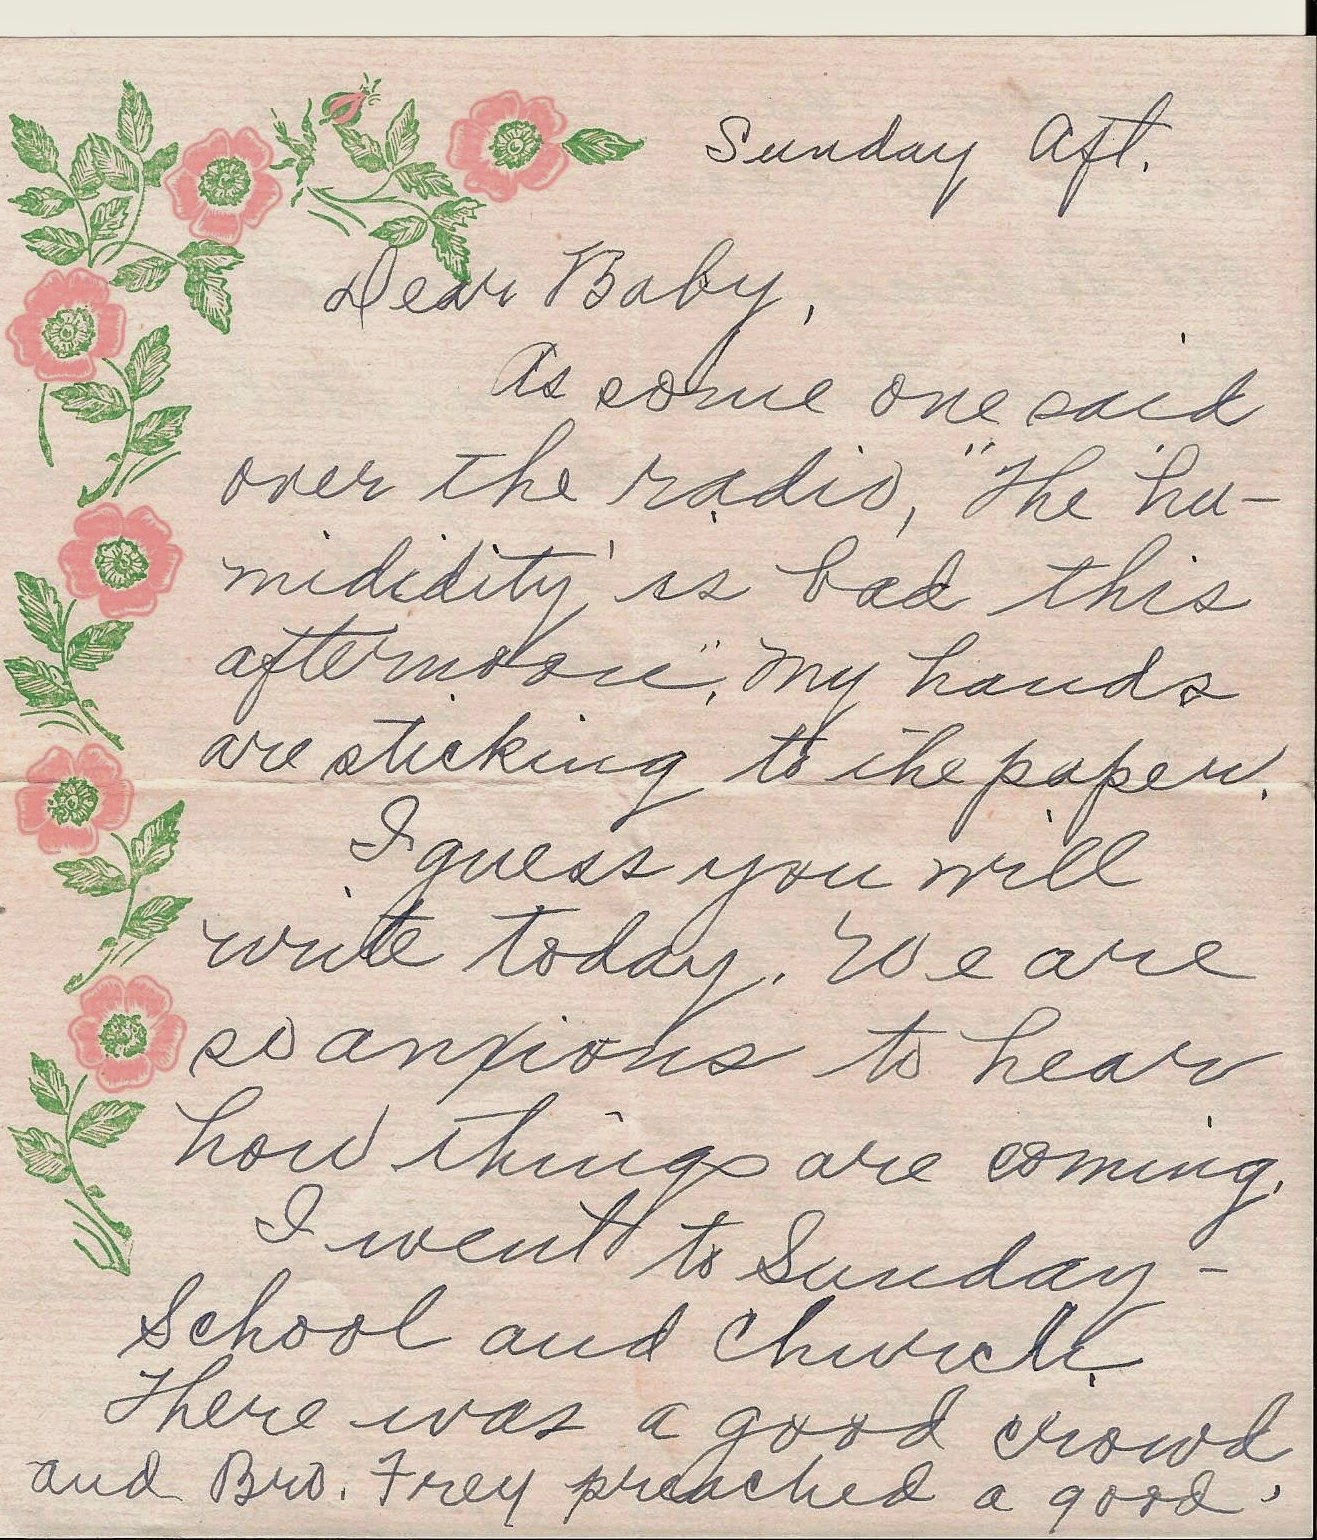 Sunday Aft.
Dear Baby,
As some one said
over the radio, "The 'hu-
mididity' is bad this
afternoon". My hands
are sticking to the paper.
I guess you will
write today. We are
so anxious to hear
how things are coming.
I went to Sunday-
School and Church.
There was a good crowd
and Bro. Frey preached a good